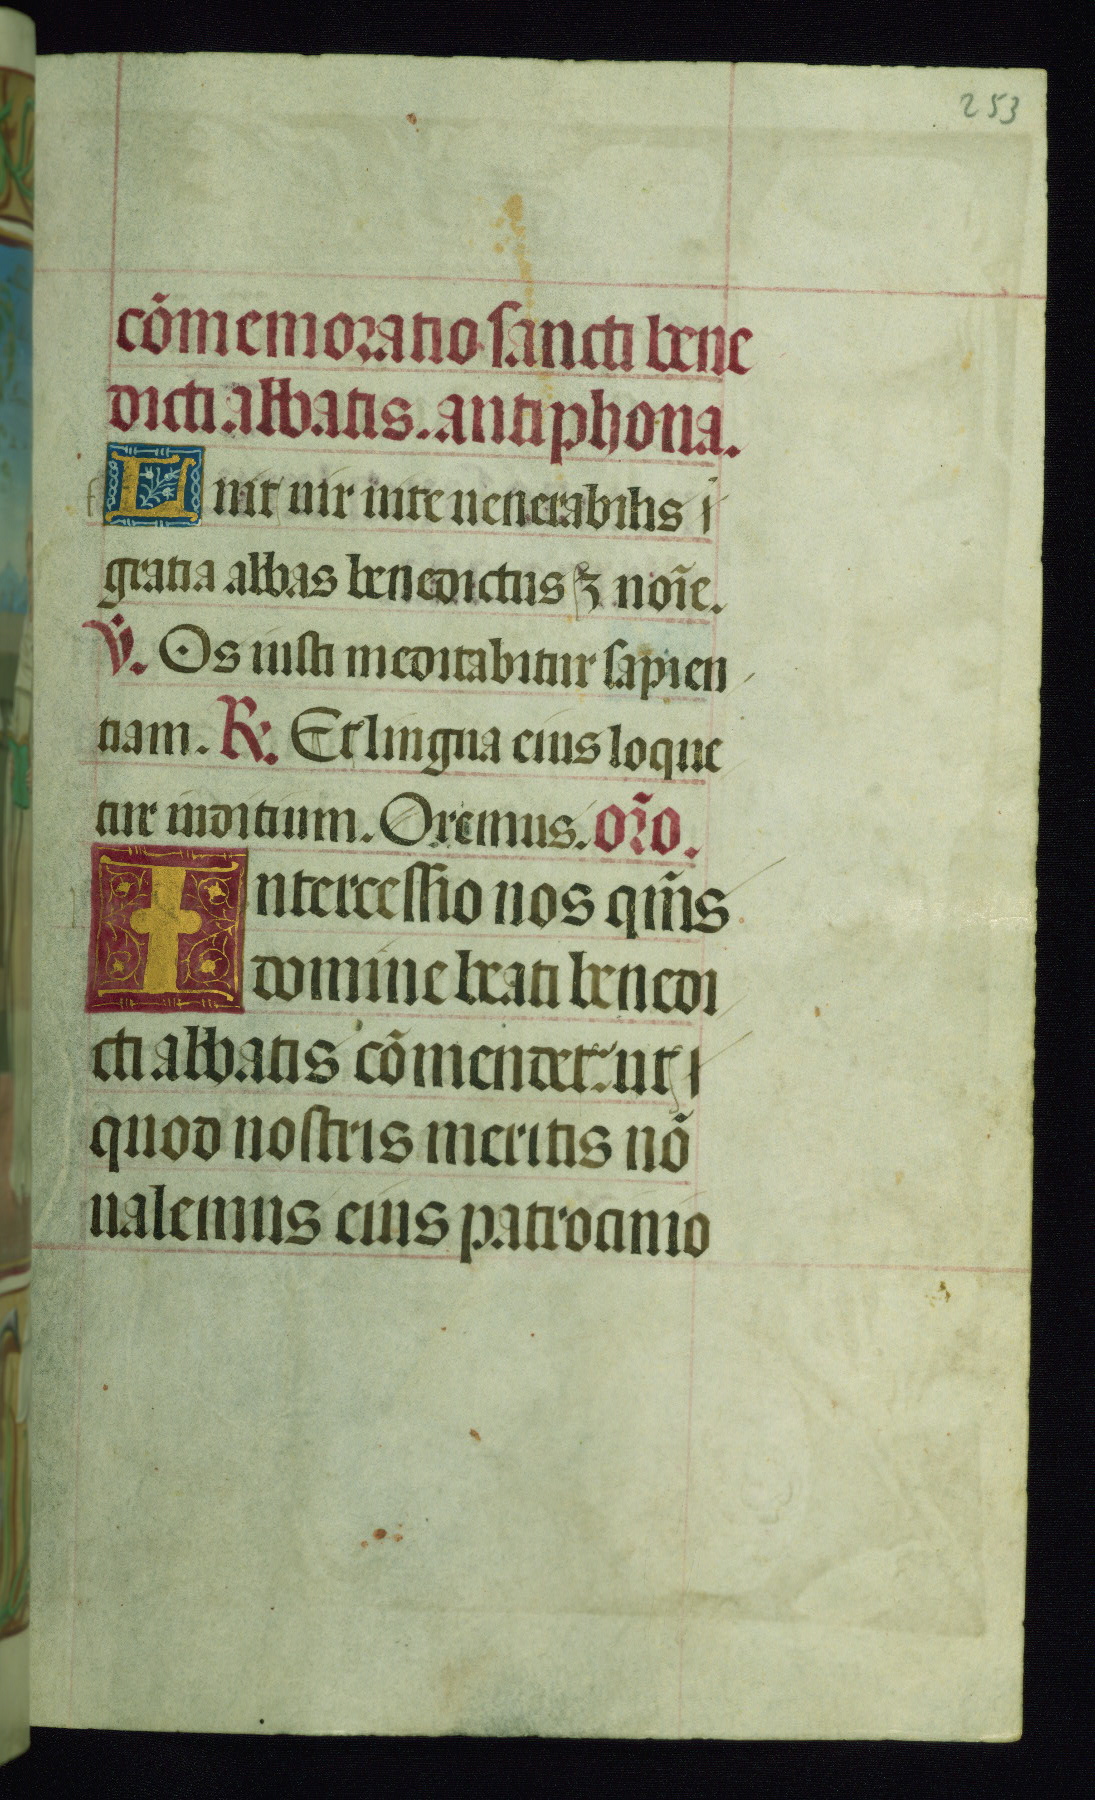 253
cõmemoratio sancti bene
dicti abbatis. antiphona.
Fuit uir uite uenerabilis
gratia abbas benedictus ⁊ noĩe.
℣. Os iusti meditabitur sapien
tiam. ℟. Et lingua eius loque
tur iuditium. Oremus. or̃o.
Intercessio nos qũis
domine beati benedi
cti abbatis cõmendet: ut
quod nostris meritis nõ
ualemus eius patrocinio